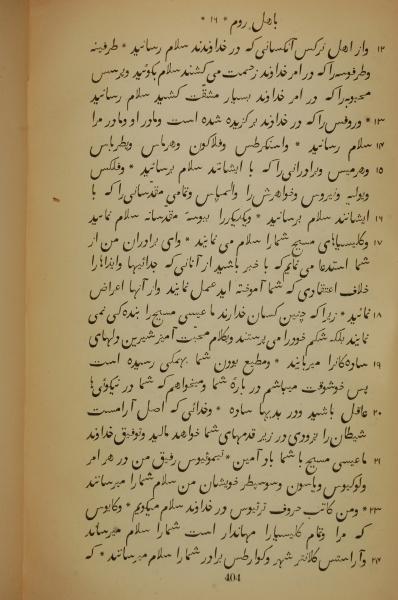 باهل روم * ١٦ *
١٢ واز اهل نرکس آنکسانی که در خداوندند سلام رسانید * طرفینه
وطرفوسه را که در امر خداوند زحمت می کشند سلام بگوئید وپرسس
محبوبه را که در امر خداوند بسیار مشقت کشید سلام رسانید
١٣ * وروفس را که در خداوند برگزیده شده است ومادر او ومادر مرا
١٤ سلام رسانید * واسنکرطس وفلاکون وهرماس وپطرباس
١٥ وهرمیس وبرادرانی را که با ایشانند سلام برسانید * وفلکس
ویولیه ونیروس وخواهرش را والمپاس وتمامی مقدسانی را که با
١٦ ایشانند سلام برسانید * ویکدیگر را ببوسهٔ مقدسانه سلام نمائید
١٧ وکلیسیاهای مسیح شما را سلام می نمایند * وای برادران من از
شما استدعا می نمایم که با خبر باشید از آنانی که جدائیها وایذاها را
خلاف اعتقادی که شما آموخته اید عمل نمایند واز آنها اعراض
١٨ نمائید * زیرا که چنین کسان خداوند ما عیسی مسیح را بندگی نمی
نمایند بلکه شکم خود را می پرستند وبکلام محبت آمیز شیرین دلهای
١٩ ساده کانرا میربایند * ومطیع بودن شما بهمگی رسیده است
پس خوشوقت میباشم در بارهٔ شما ومیخواهم که شما در نیکوئی‌ها
٢٠ عاقل باشید ودر بدیها ساده * وخدائی که اصل آرامست
شیطان را بزودی در زیر قدمهای شما خواهد مالید وتوفیق خداوند
٢١ ما عیسی مسیح با شما باد آمین * تیموثیوس رفیق من در هر امر
ولوکیوس ویاسون وسوسیطر خویشان من سلام شما را میرسانند
٢٣ * ومن کاتب حروف ترتیوس در خداوند سلام میگویم * وکایوس
که مرا وتمام کلیسیا را مهاندار است شما را سلام میرساند
٢٤ وآراستس کلانتر شهر وکوارطس برادر شما را سلام میرسانند * که
404